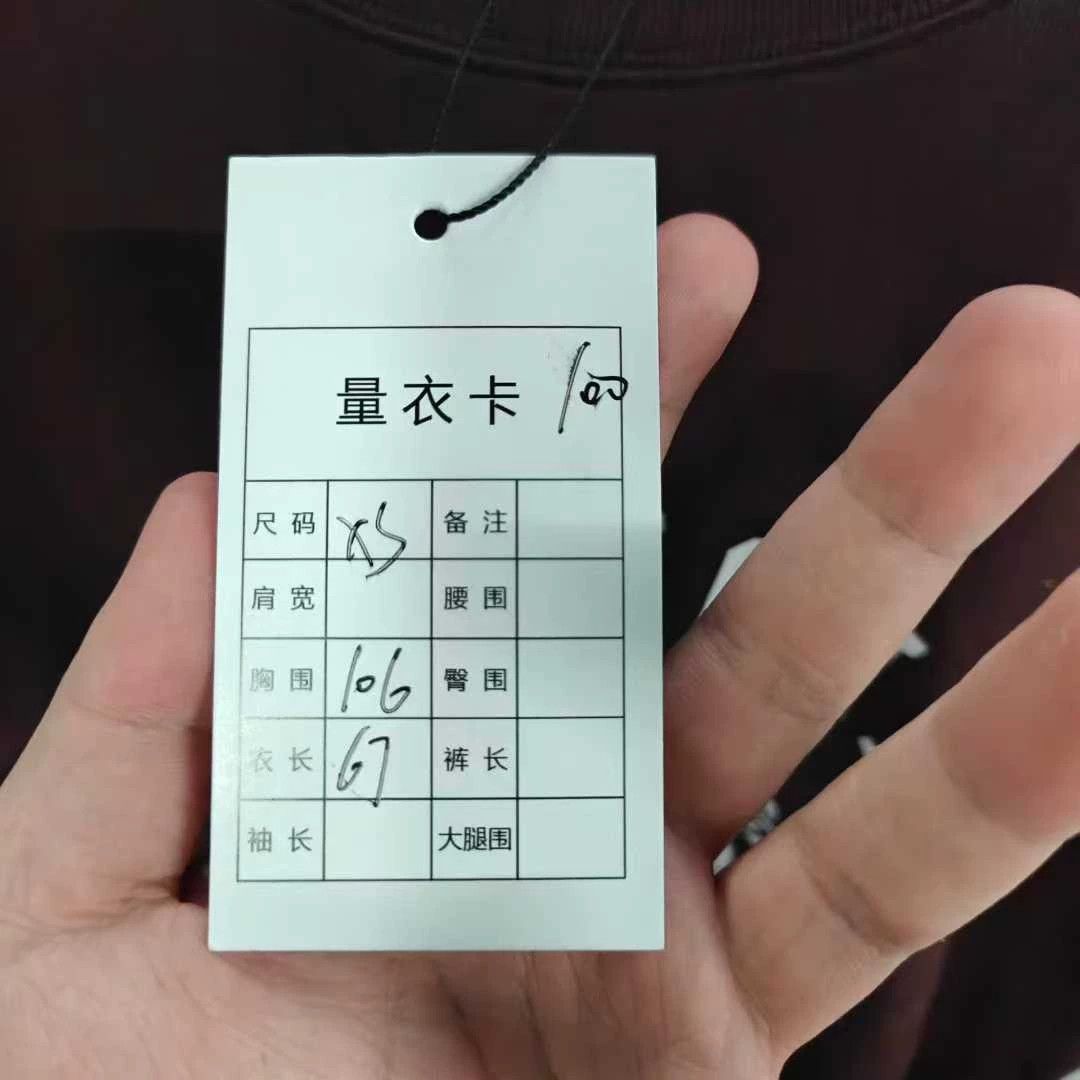 量衣卡 100
尺码 XS 备注
肩宽 腰围
胸围 106 臀围
衣长 67 裤长
袖长 大腿围